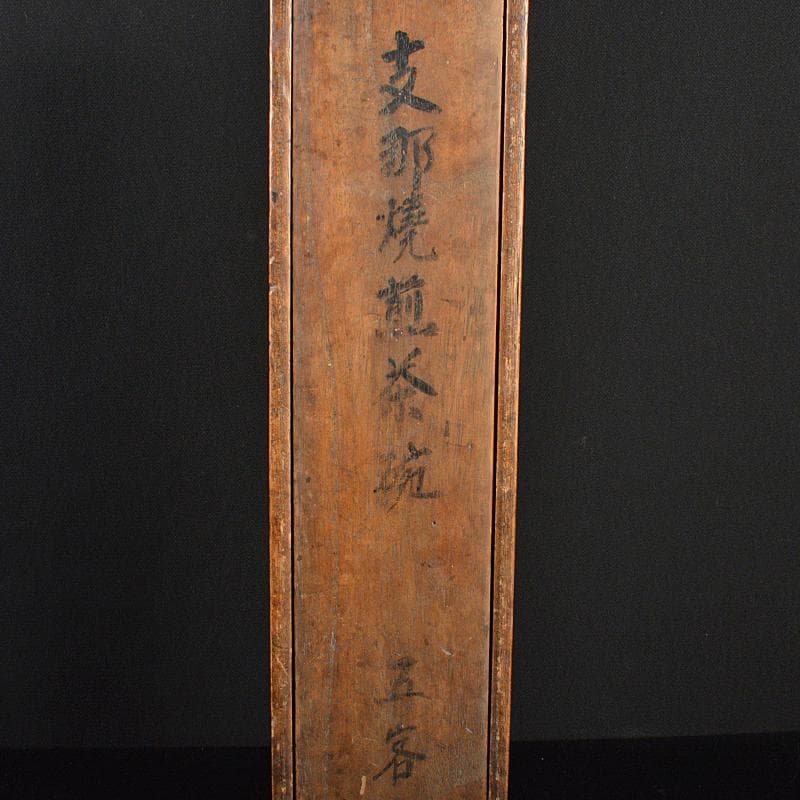 支那燒煎茶碗 五客